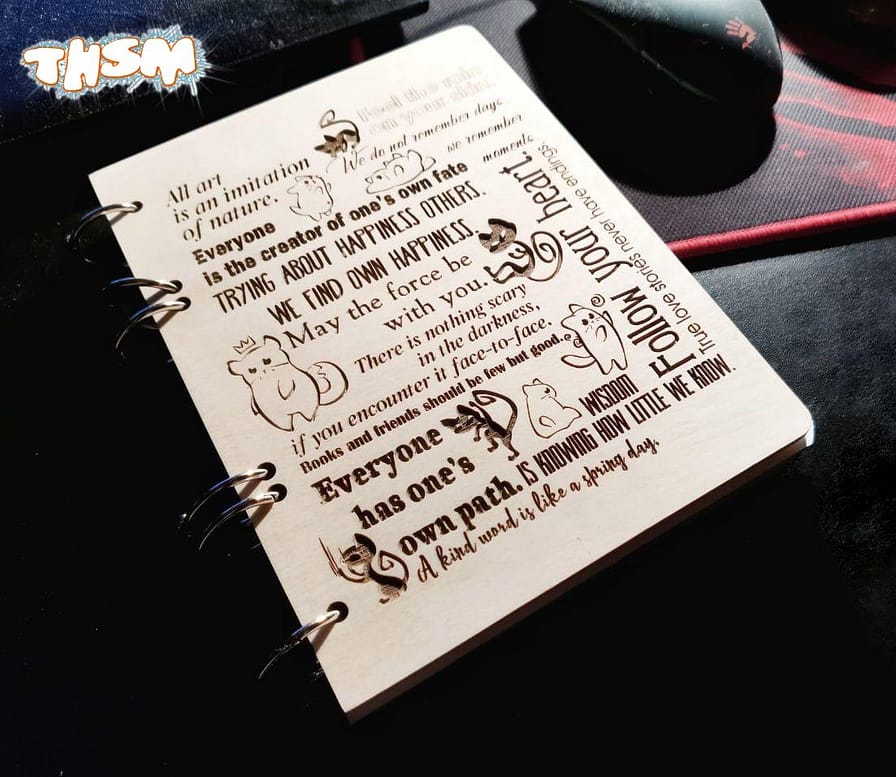 THSM
Feel the rain
on your skin.
We do not remember days,
we remember
moments.
All art
is an imitation
of nature.
Everyone
is the creator of one's own fate
TRYING ABOUT HAPPINESS OTHERS,
WE FIND OWN HAPPINESS.
May the force be
with you.
There is nothing scary
in the darkness,
if you encounter it face-to-face.
Books and friends should be few but good.
Follow your heart.
True love stories never have endings.
Everyone
has one's
own path.
WISDOM
IS KNOWING HOW LITTLE WE KNOW.
A kind word is like a spring day.